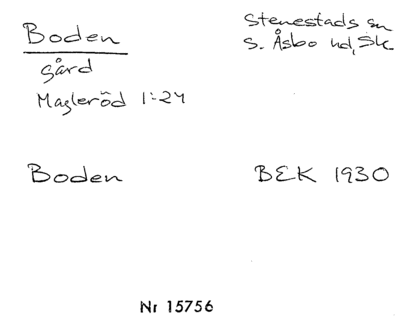 Boden
Stenestads sn
S. Åsbo hd, Sk
gård
Magleröd 1:24
Boden
BEK 1930
Nr 15756